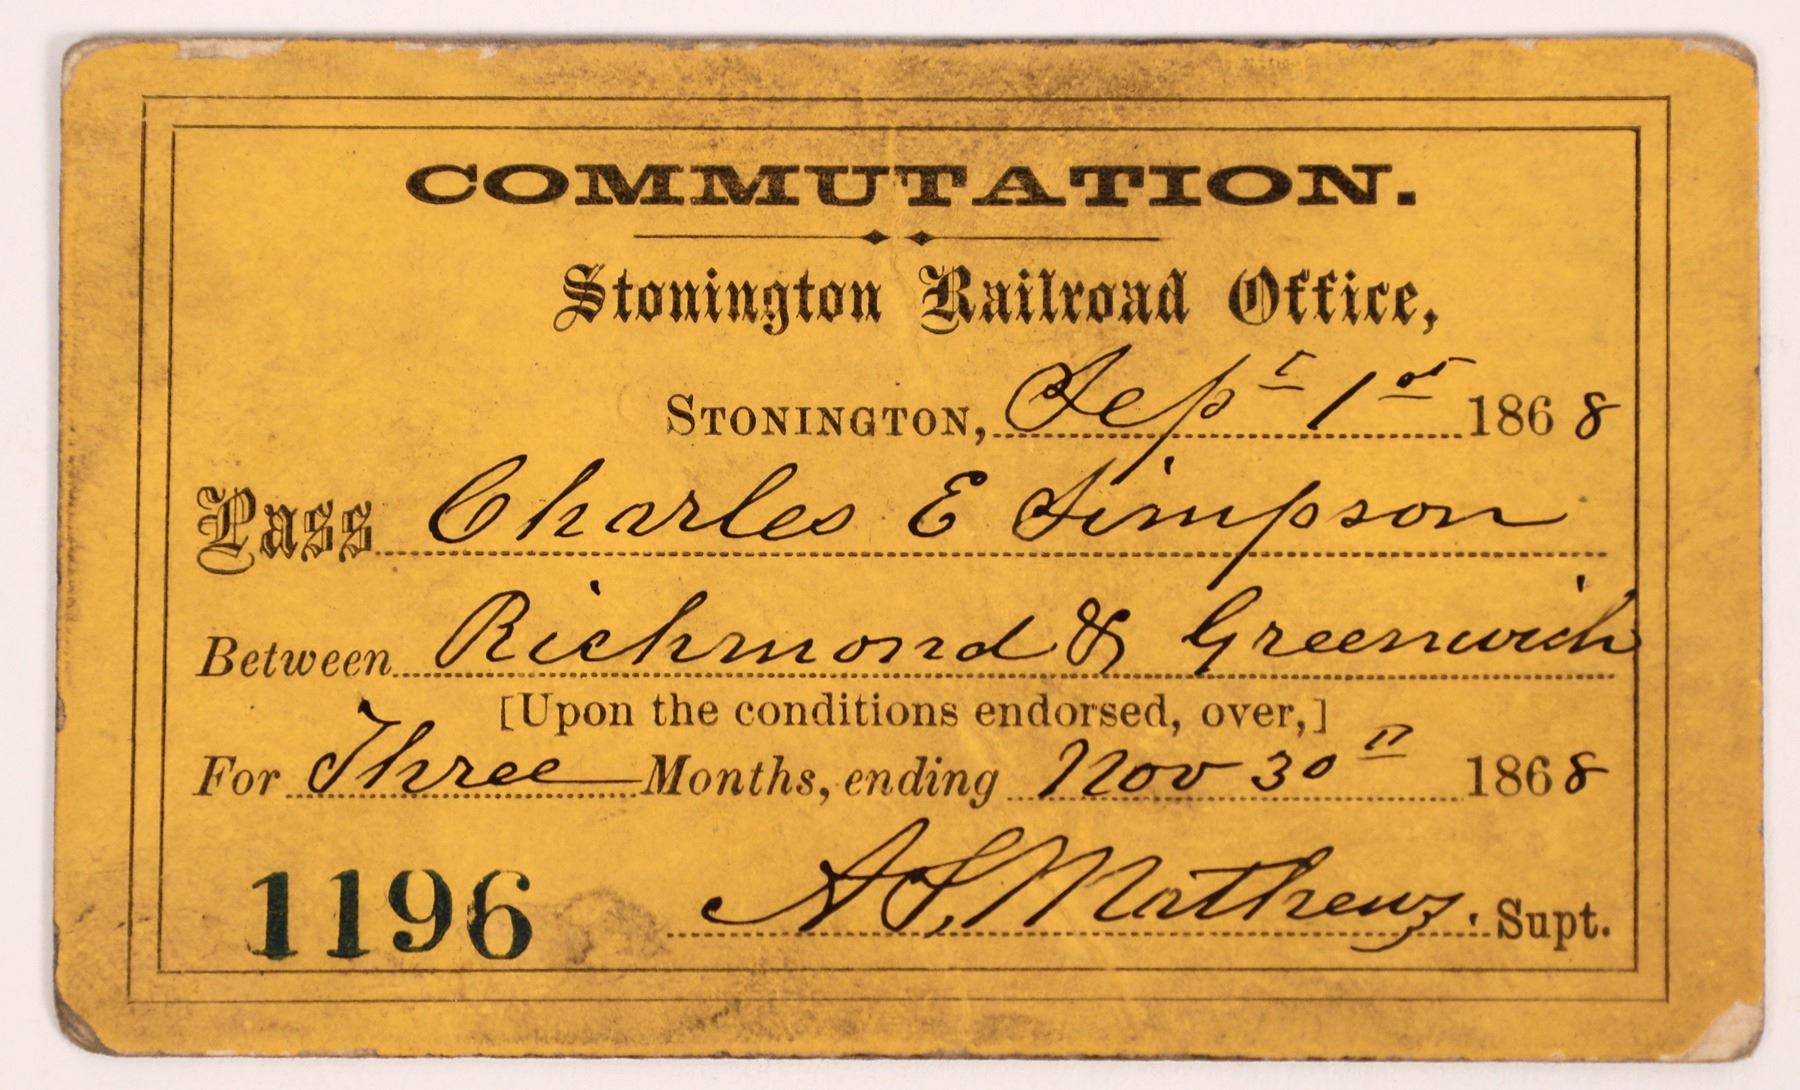 COMMUTATION.
Stonington Railroad Office,
STONINGTON, Sept 1st 1868
Pass Charles E Simpson
Between Richmond & Greenwich
[Upon the conditions endorsed, over,]
For Three Months, ending Nov 30" 1868
1196 A S Mathews. Supt.